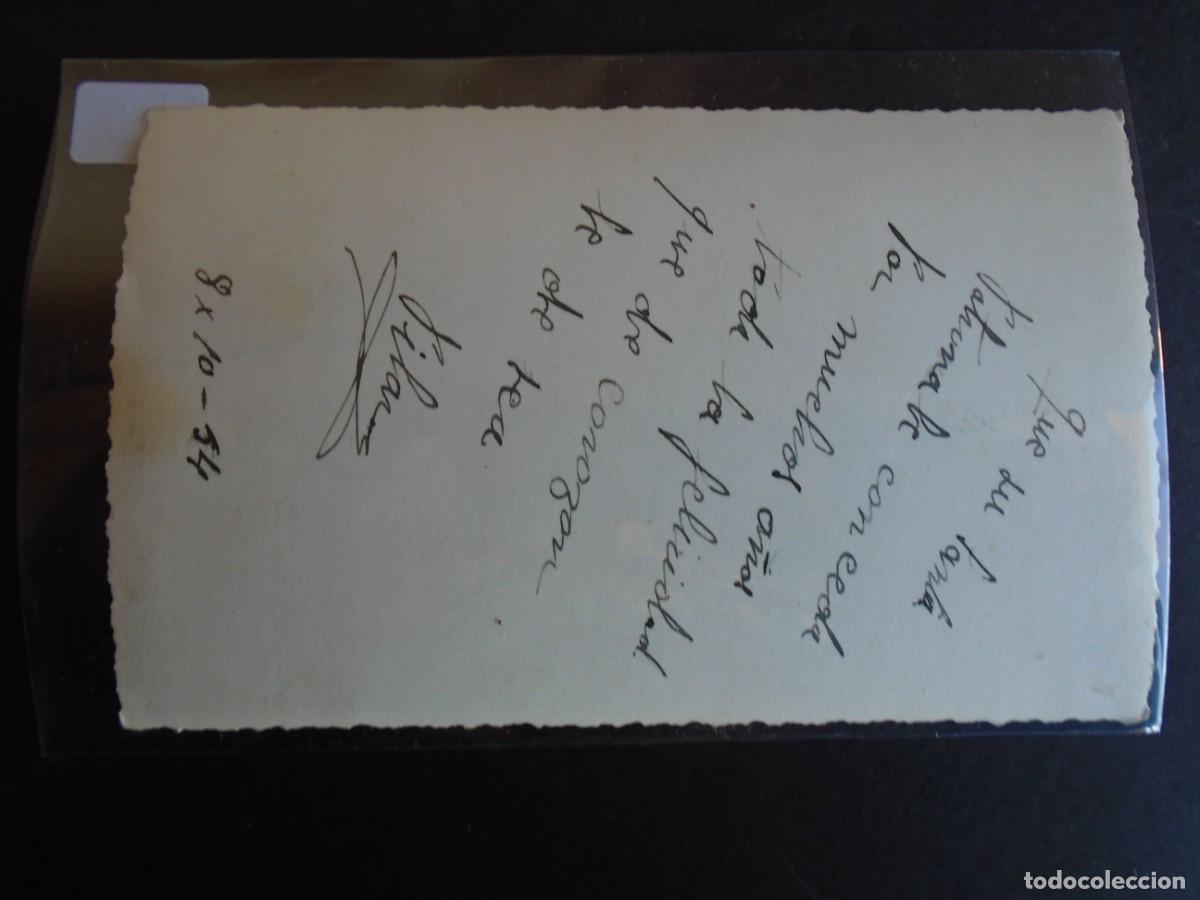 Que su Santa
Patrona le conceda
por muchos años
toda la felicidad
que de corazon
le de sea
Pilar
8 x 10 - 54
todocoleccion